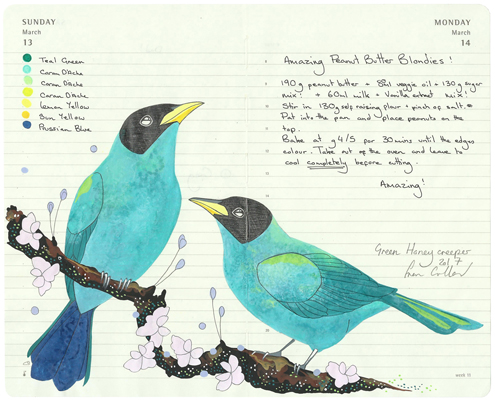 SUNDAY
March
13
Teal Green
Caran D'Ache
Caran D'Ache
Caran D'Ache
Lemon Yellow
Sun Yellow
Prussian Blue
MONDAY
March
14
Amazing Peanut Butter Blondies!
190g peanut butter + 85ml veggie oil + 130g sugar
mix! + 60ml milk + Vanilla extract mix!
Stir in 130g self raising flour + pinch of salt.
Pat into the pan and place peanuts on the
top.
Bake at g4/5 for 30mins until the edges
colour. Take out of the oven and leave to
cool completely before cutting.
Amazing!
Green Honeycreeper
2017
week 10